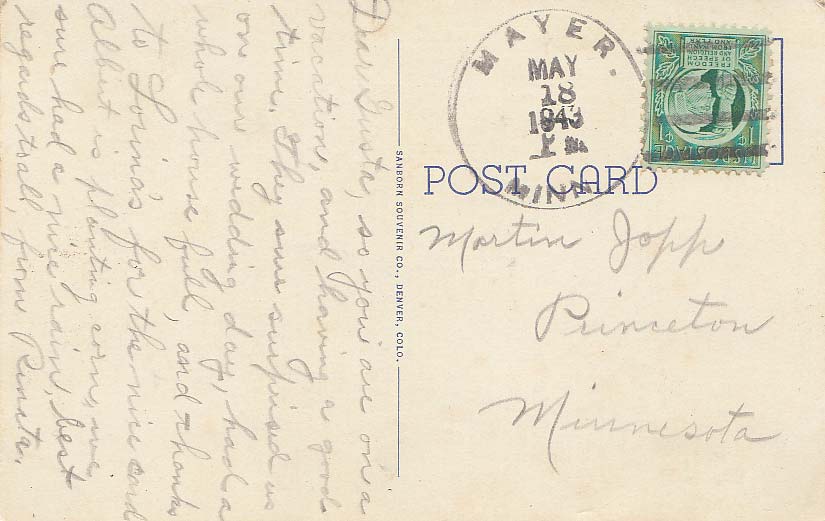 Dear Gusta, so you are on a
vacation, and having a good
time. They sure surprised us
on our wedding day, had a
whole house full, and thanks
to Lorinas for the nice card
Albert is planting corn, we
sure had a nice rain, best
regards to all, from Renata.
SANBORN SOUVENIR CO., DENVER, COLO.
MAYER.
MAY
18
1943
MINN
POST CARD
FREEDOM
OF SPEECH
AND RELIGION,
FROM WANT
AND FEAR
U.S. POSTAGE 1¢
Martin Jopp
Princeton
Minnesota